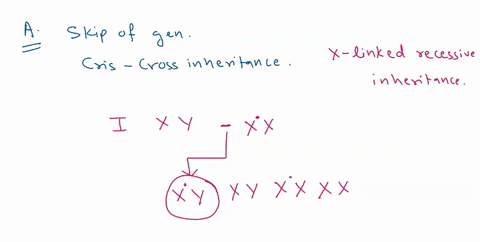 A. Skip of gen.
Cris-Cross inheritance.
X-linked recessive
inheritance.
I XY - ẊX
ẊY XY ẊX XX